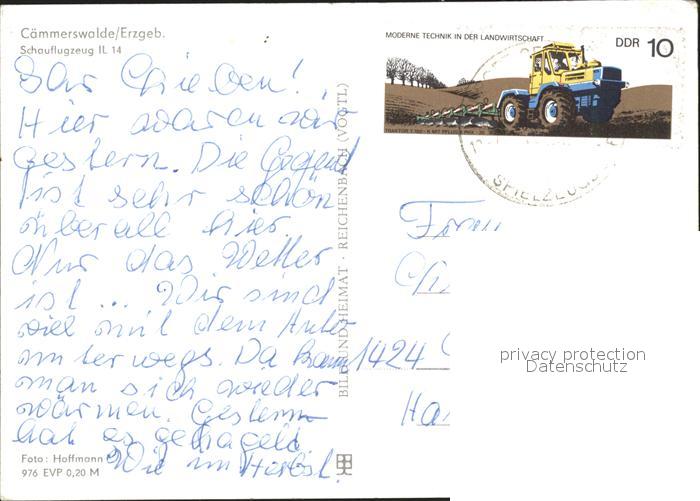 Cämmerswalde/Erzgeb.
Schauflugzeug IL 14
Ihr Lieben!
Hier waren wir
gestern. Die Gegend
ist sehr schön
überall hier.
Nur das Wetter
ist ... Wir sind
viel mit dem Auto
unterwegs. Da kann
man sich wieder
wärmen. Gestern
hat es gehagelt
Wie im Herbst.
Foto: Hoffmann
976 EVP 0,20 M
BILD UND HEIMAT · REICHENBACH (VOGTL)
MODERNE TECHNIK IN DER LANDWIRTSCHAFT
DDR 10
1424
privacy protection
Datenschutz